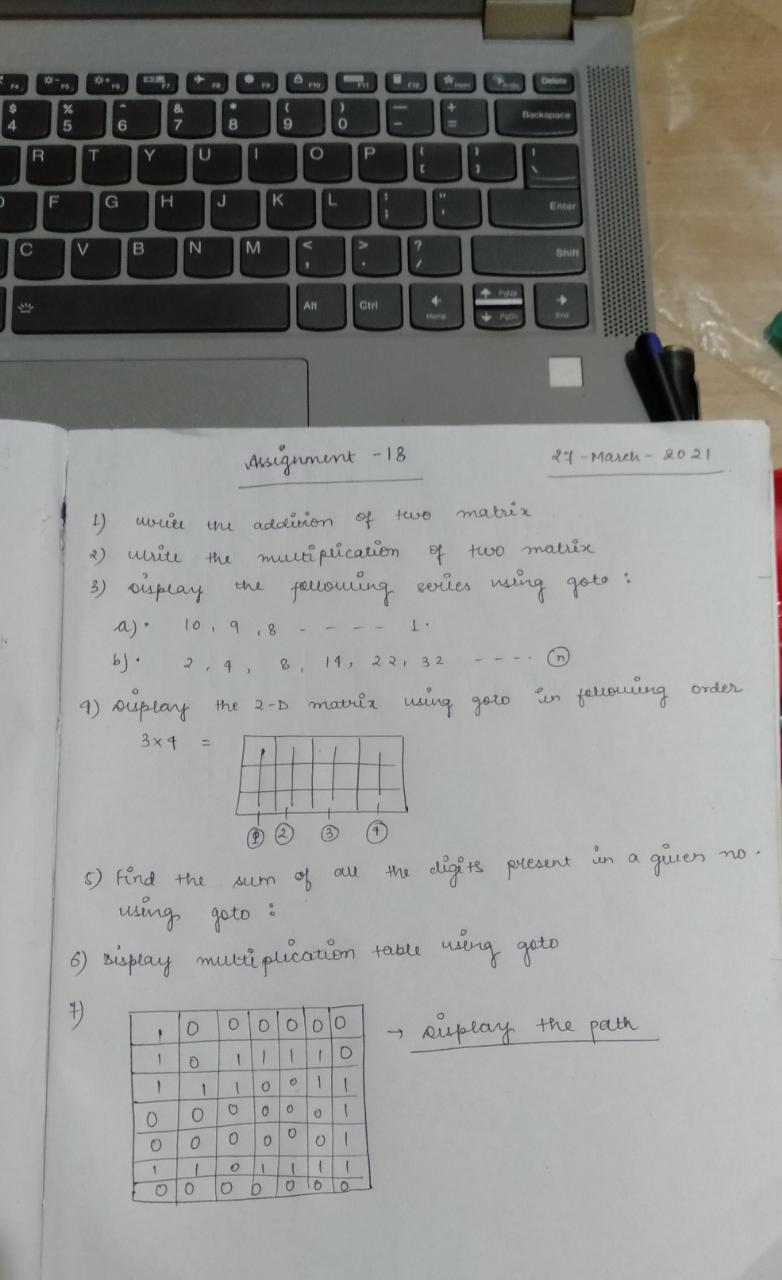 F4 F5 F6 F7 F8 F9 F10 F11 F12 Delete
$ 4 % 5 ^ 6 & 7 * 8 ( 9 ) 0 — - + = Backspace
R T Y U I O P { [ } ] | \
D F G H J K L : ; " ' Enter
C V B N M < , > . ? / Shift
Alt Ctrl Home PgUp PgDn End
Assignment - 18 27 - March - 2021
1) write the addition of two matrix
2) write the multiplication of two matrix
3) Display the following series using goto :
a) • 10, 9, 8 - - - - 1.
b) • 2, 4, 8, 14, 22, 32 - - - - n
4) Display the 2-D matrix using goto in following order
3 x 4 =
1 2 3 4
5) Find the sum of all the digits present in a given no.
using goto :
6) Display multiplication table using goto
7)
1 0 0 0 0 0 0 → Display the path
1 0 1 1 1 1 0
1 1 1 0 0 1 1
0 0 0 0 0 0 1
0 0 0 0 0 0 1
1 1 0 1 1 1 1
0 0 0 0 0 0 0